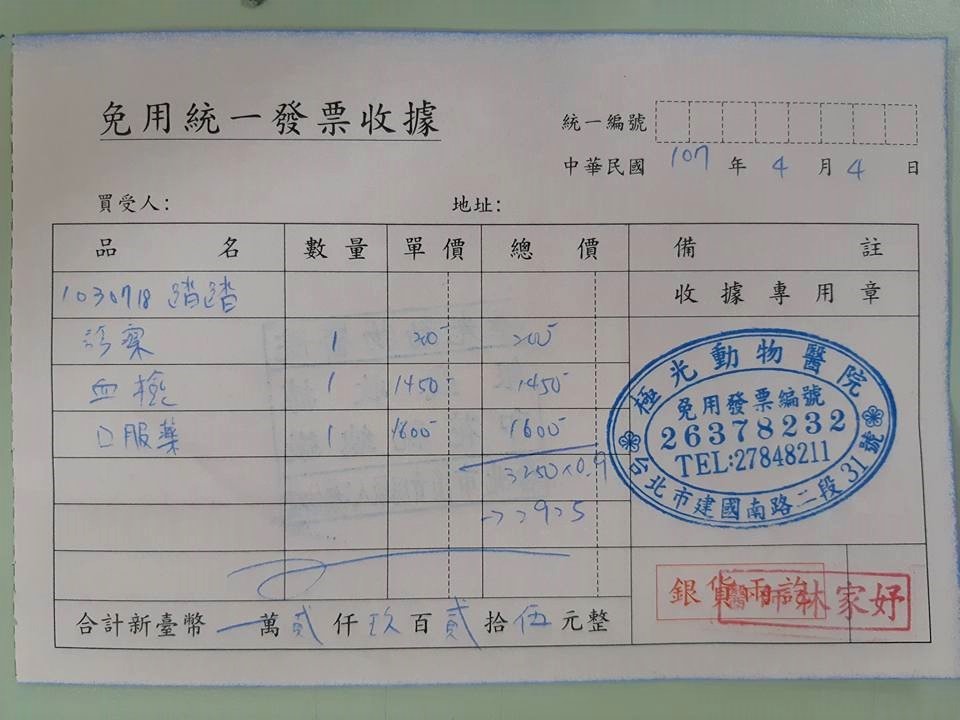 免用統一發票收據
統一編號
中華民國 107 年 4 月 4 日
買受人: 地址:
品名 數量 單價 總價 備註
收據專用章
1030718 踏踏
診察 1 200 200
血檢 1 1450 1450
口服藥 1 1600 1600
3250×0.9
→2925
極光動物醫院
免用發票編號
26378232
TEL:27848211
台北市建國南路二段31號
合計新臺幣 萬貳仟玖百貳拾伍元整
銀貨兩訖
林家妤